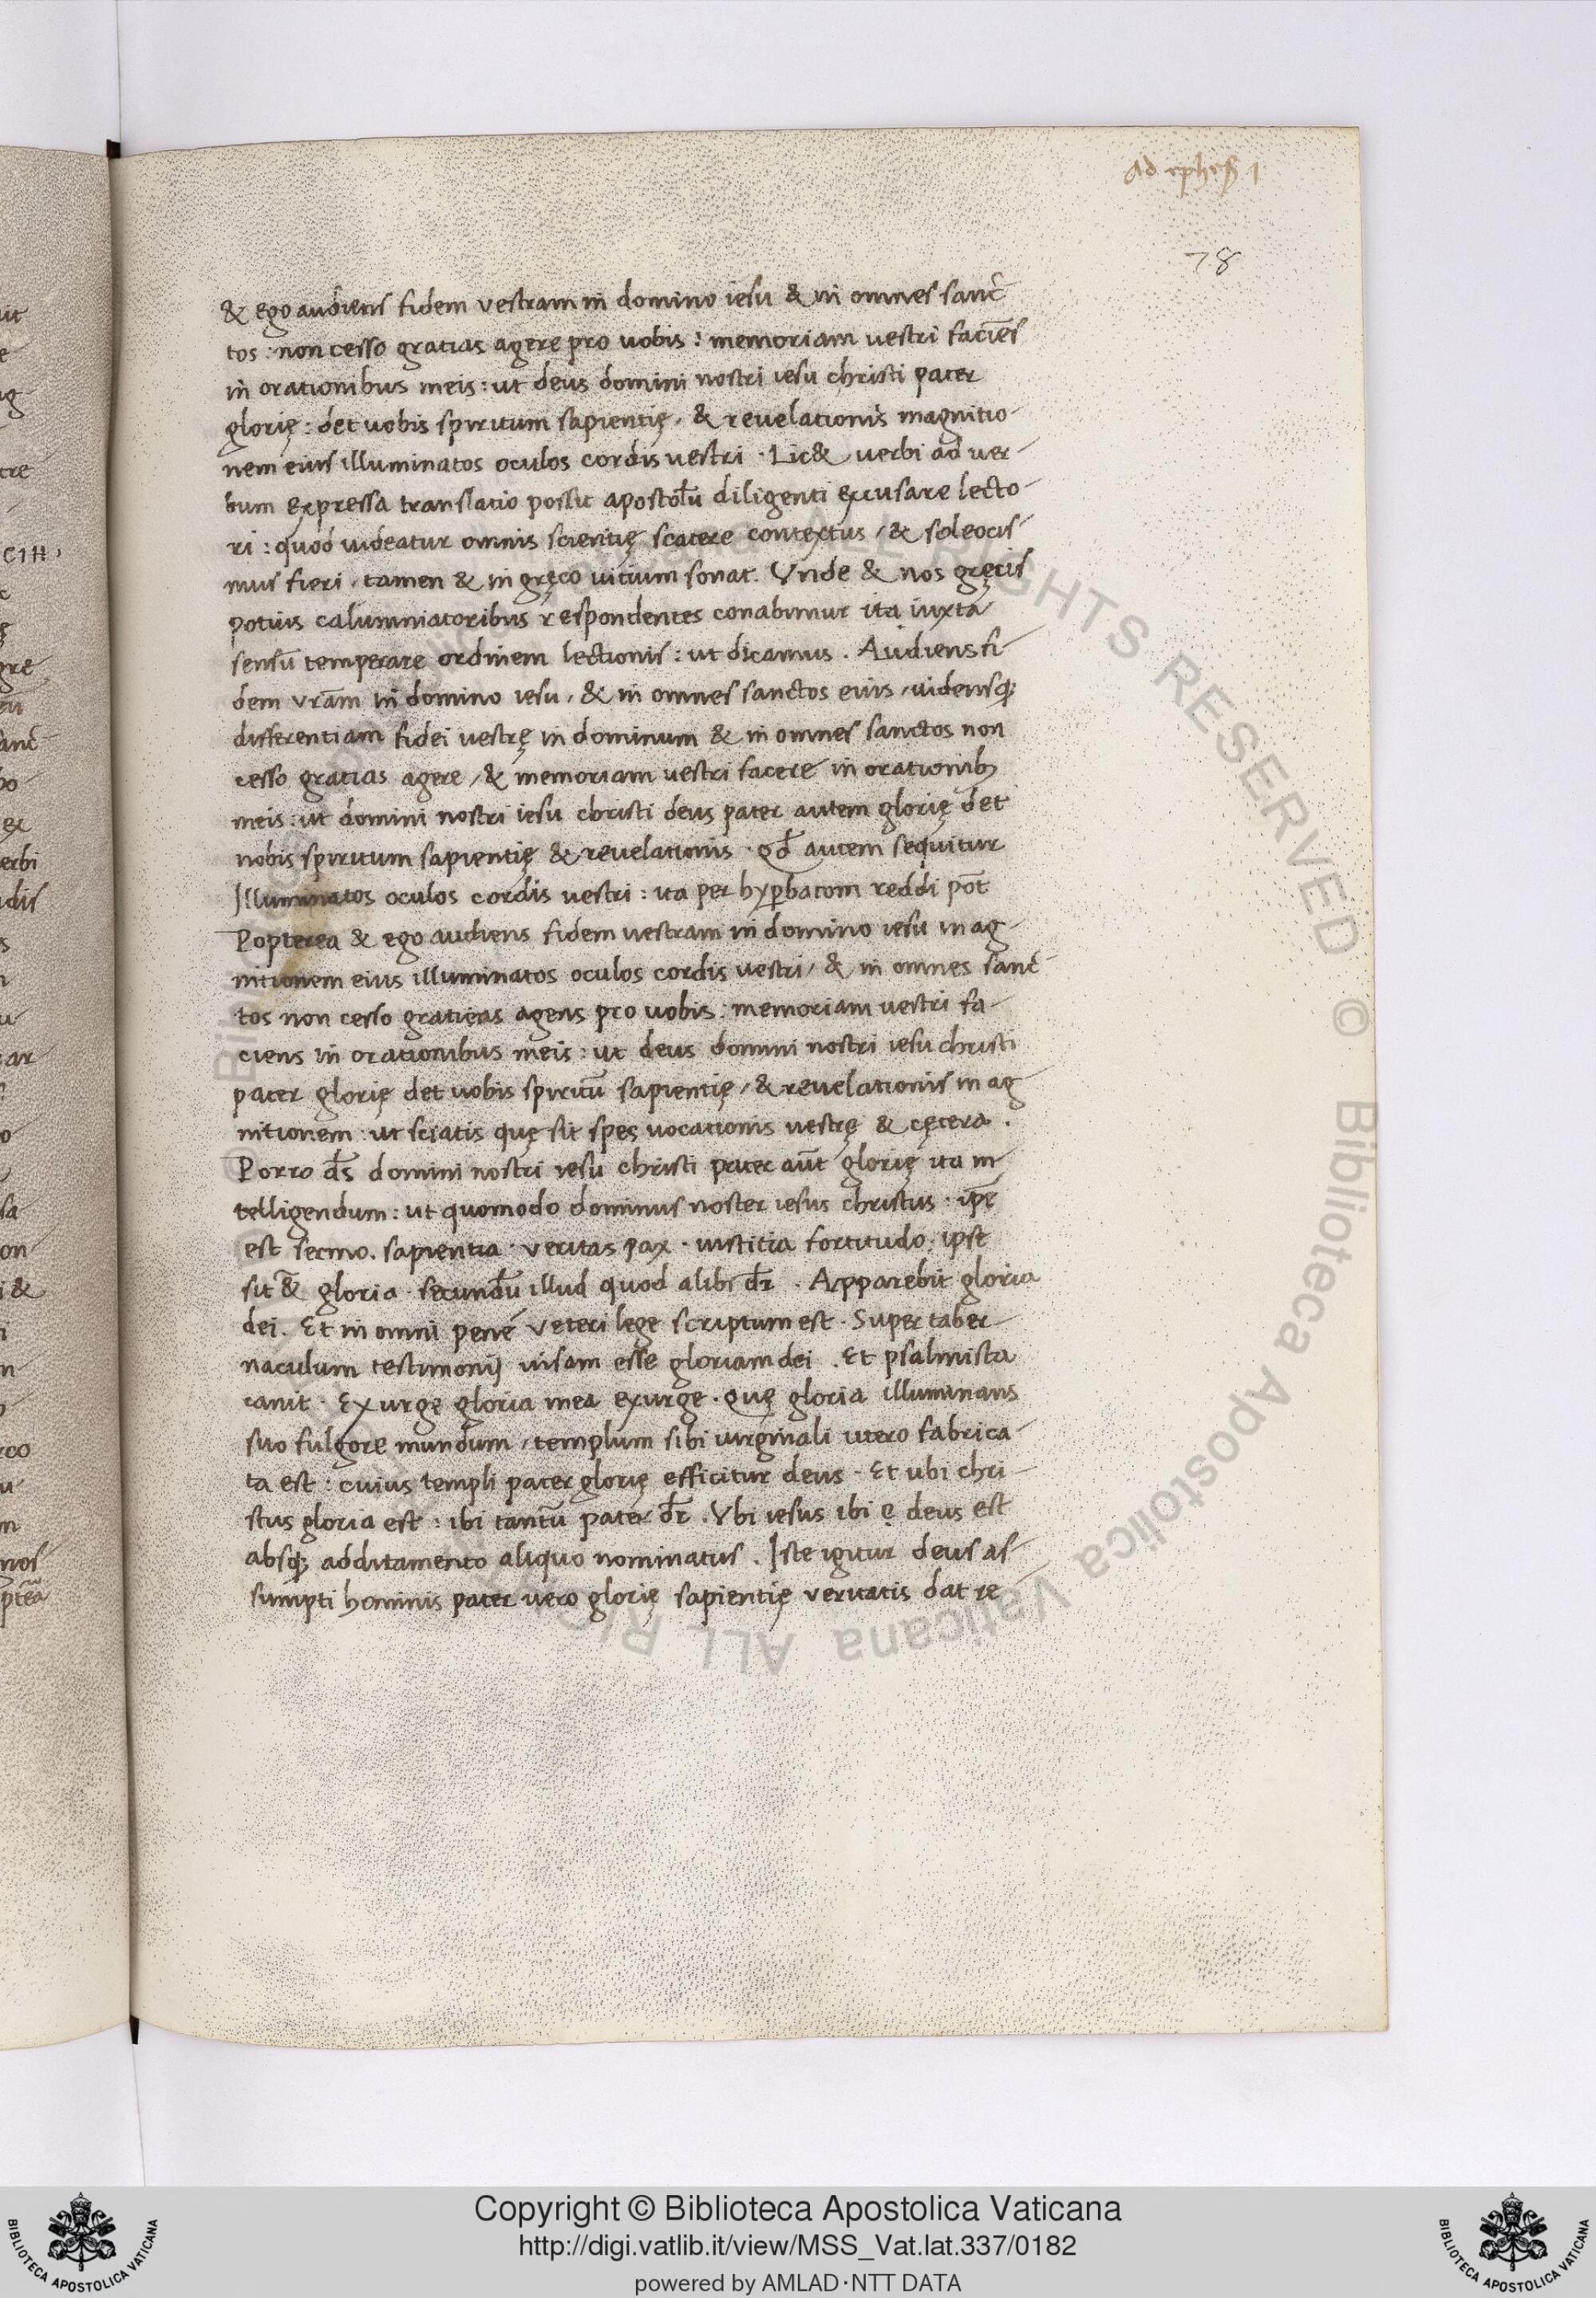 Ad ephes 1
78
& ego audiens fidem vestram in domino iesu & in omnes sanc̄
tos : non cesso gratias agere pro uobis : memoriam vestri faciēs
in orationibus meis : ut deus domini nostri iesu christi pater
glorię : det uobis spiritum sapientię , & reuelationis magnitio-
nem eius illuminatos oculos cordis vestri · Lic& uerbi ad uer-
bum expressa translatio possit apostolū diligenti excusare lecto-
ri : quod uideatur omnis scientię scatere contextus , & soleocis-
mus fieri , tamen & in gręco uitium sonat. Vnde & nos gręcis
potius calumniatoribus respondentes conabimur ita iuxta
sensū temperare ordinem lectionis : ut dicamus . Audiens fi-
dem vrām in domino iesu , & in omnes sanctos eius , uidensq;
differentiam fidei vestrę in dominum & in omnes sanctos non
cesso gratias agere , & memoriam vestri facere in orationib;
meis : ut domini nostri iesu christi deus pater autem glorię det
nobis spiritum sapientię & reuelationis · qd̄ autem sequitur
Illuminatos oculos cordis vestri : ita per hyp̱batom reddi pōt
Popterea & ego audiens fidem uestram in domino iesu in ag-
nitionem eius illuminatos oculos cordis vestri , & in omnes sanc̄-
tos non cesso gratieas agens pro uobis : memoriam vestri fa-
ciens in orationibus meis : ut deus domini nostri iesu christi
pater glorię det uobis spiritū sapientię , & reuelationis in ag-
nitionem : ut sciatis quę sit spes uocationis uestrę & cętera .
Porro d̄s domini nostri iesu christi pater aūt glorię ita in-
telligendum : ut quomodo dominus noster iesus christus · ip̄e
est sermo . sapientia · veritas pax · iustitia fortitudo : ipse
sit & gloria · secundū illud quod alibi dr̄ . Apparebit gloria
dei . Et in omni penè veteri lege scriptum est · Super taber-
naculum testimonij uisam esse gloriam dei . Et psalmista
canit · Exurge gloria mea exurge · quę gloria illuminans
suo fulgore mundum , templum sibi uirginali utero fabrica-
ta est : cuius templi pater glorię efficitur deus · Et ubi chri-
stus gloria est : ibi tantū pater dr̄ . Vbi iesus ibi ę deus est
absq; additamento aliquo nominatus . Iste igitur deus as-
sumpti hominis pater uero glorię sapientię veritatis dat re
Copyright © Biblioteca Apostolica Vaticana
http://digi.vatlib.it/view/MSS_Vat.lat.337/0182
powered by AMLAD·NTT DATA